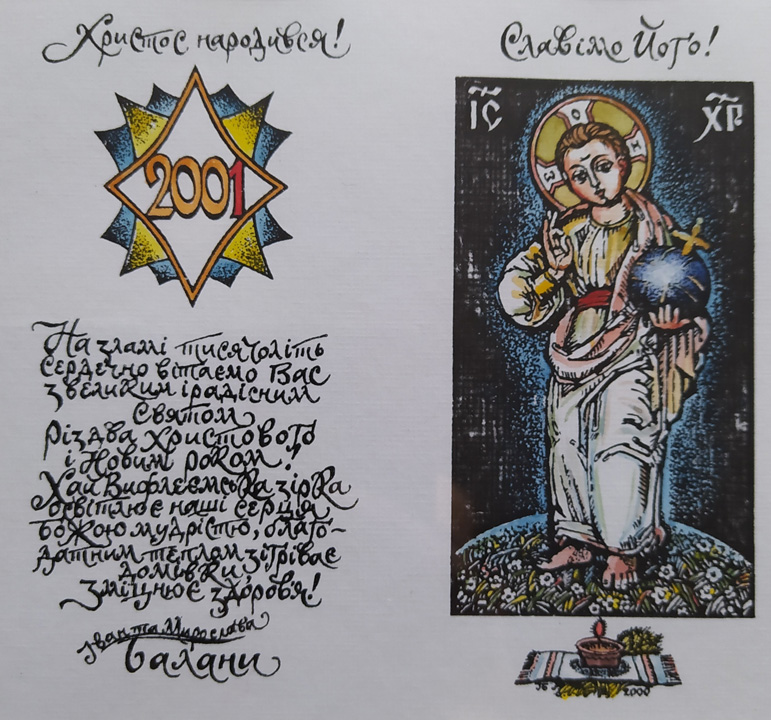 Христос народився!
2001
На зламі тисячоліть
сердечно вітаємо Вас
з великим і радісним
Святом
Різдва Христового
і Новим роком!
Хай Вифлеємська зірка
освітлює наші серця
Божою мудрістю, благо-
датним теплом зігріває
домівки,
зміцнює здоров'я!
Іван та Мирослава
Балани
Славімо Його!
ІС ХР
2000